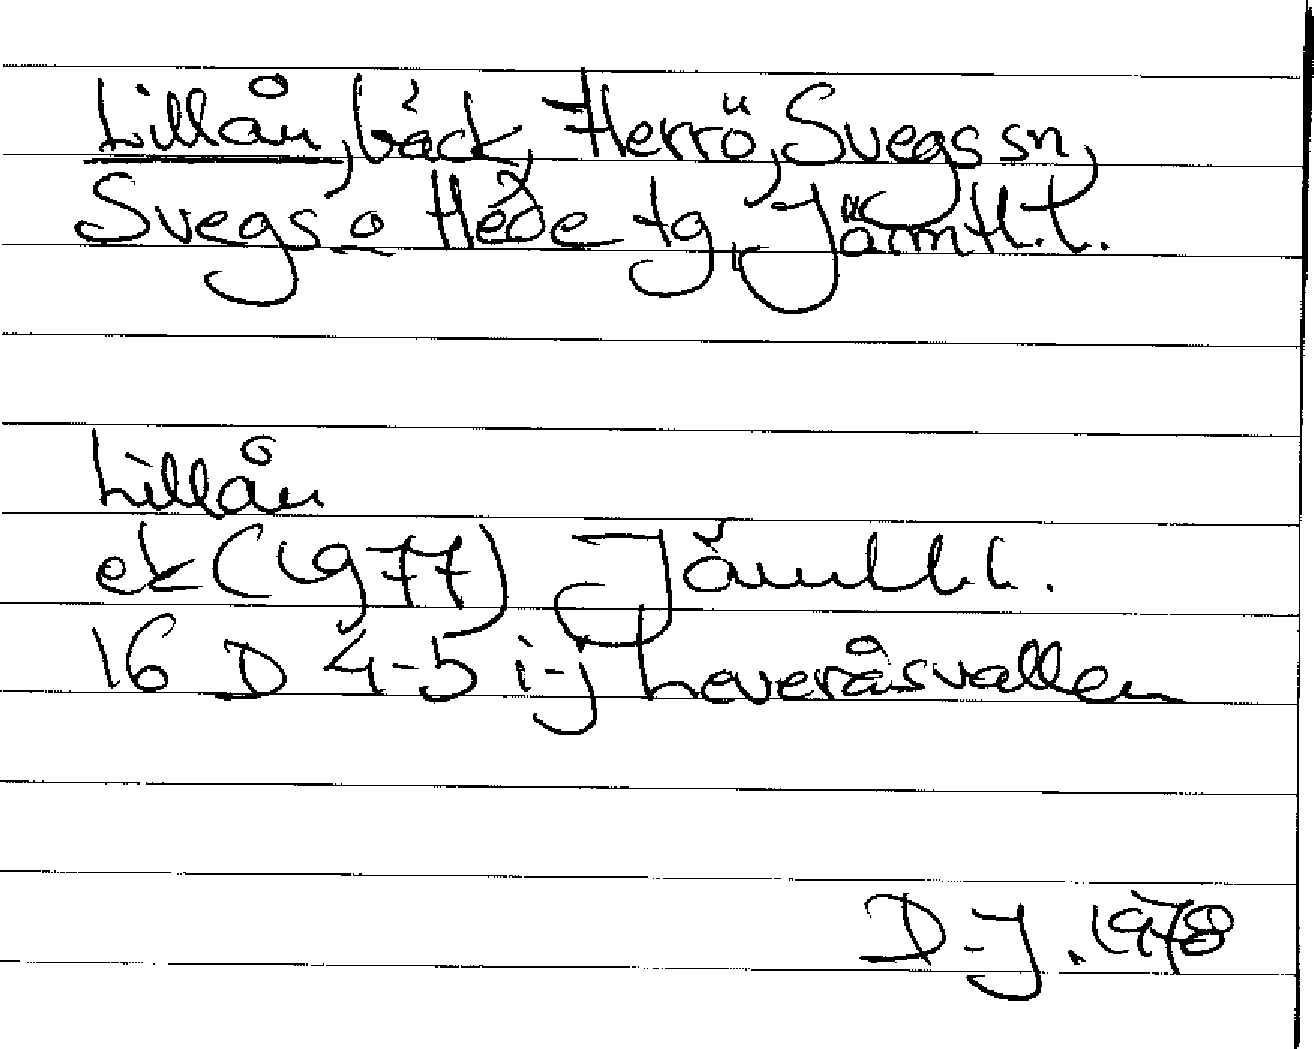 Lillån, bäck, Herrö, Svegs sn,
Svegs o Hede tg, Jämtl. l.
Lillån
ek (1977) Jämtl. l.
16 D 4-5 i-j Leveråsvallen
D-J. 1978